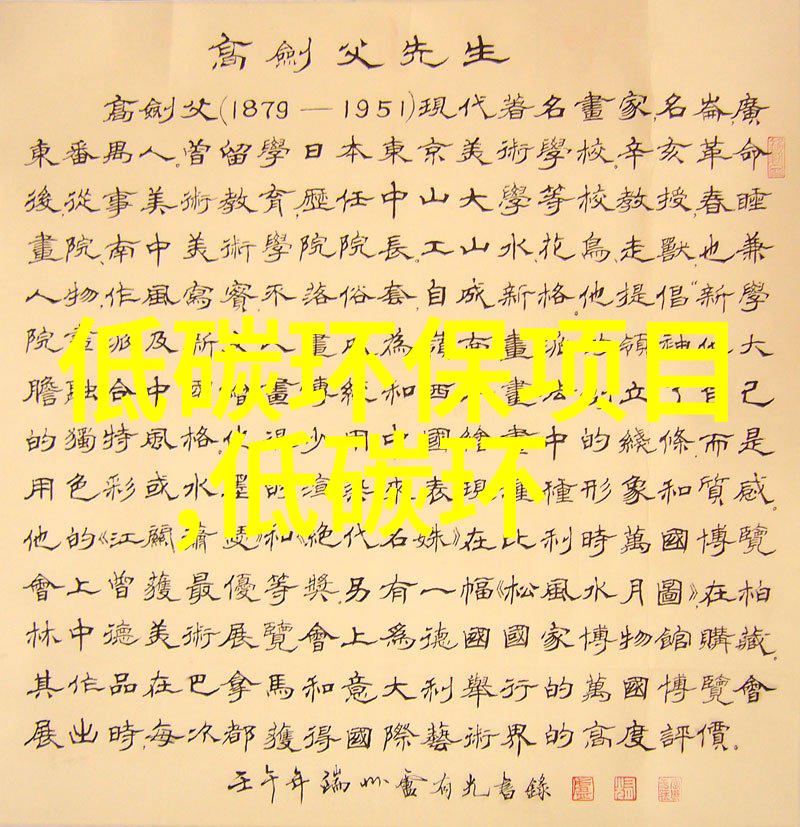 高劍父先生
高劍父(1879—1951)現代著名畫家,名崙,廣
東番禺人。曾留學日本東京美術學校。辛亥革命
後,從事美術教育,歷任中山大學等校教授,春睡
畫院、南中美術學院院長。工山水、花鳥、走獸,也兼
人物,作風寫實,不落俗套,自成新格。他提倡"新學
院畫派及新文人畫 為嶺南畫派 領 他大
膽融合中國 畫傳統和西 畫法 立了自己
的獨特風格。他 少用中國繪畫中的綫條,而是
用色彩或水墨的渲染來表現 種形象和質感。
他的《江關蕭瑟》和《絕代名姝》在比利時萬國博覽
會上曾獲最優等獎。另有一幅《松風水月圖》,在柏
林中德美術展覽會上爲德國國家博物館購藏。
其作品在巴拿馬和意大利舉行的萬國博覽會
展出時,每次都獲得國際藝術界的高度評價。
壬午年端州盧有光書錄
低碳环保项目
,低碳环